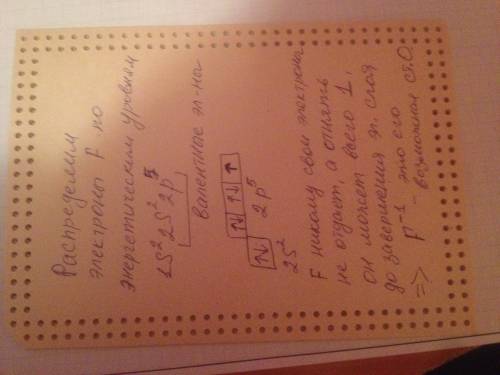 Распределим
электроны F по
энергетическим уровням
1S² 2S² 2p⁵
Валентные эл-на
↑↓ ↑↓ ↑↓ ↑
2S² 2p⁵
F никому свои электроны
не отдает, а отнять
он может всего 1,
до завершения эл. слоя
=> F⁻¹ - это его возможная ст.О.